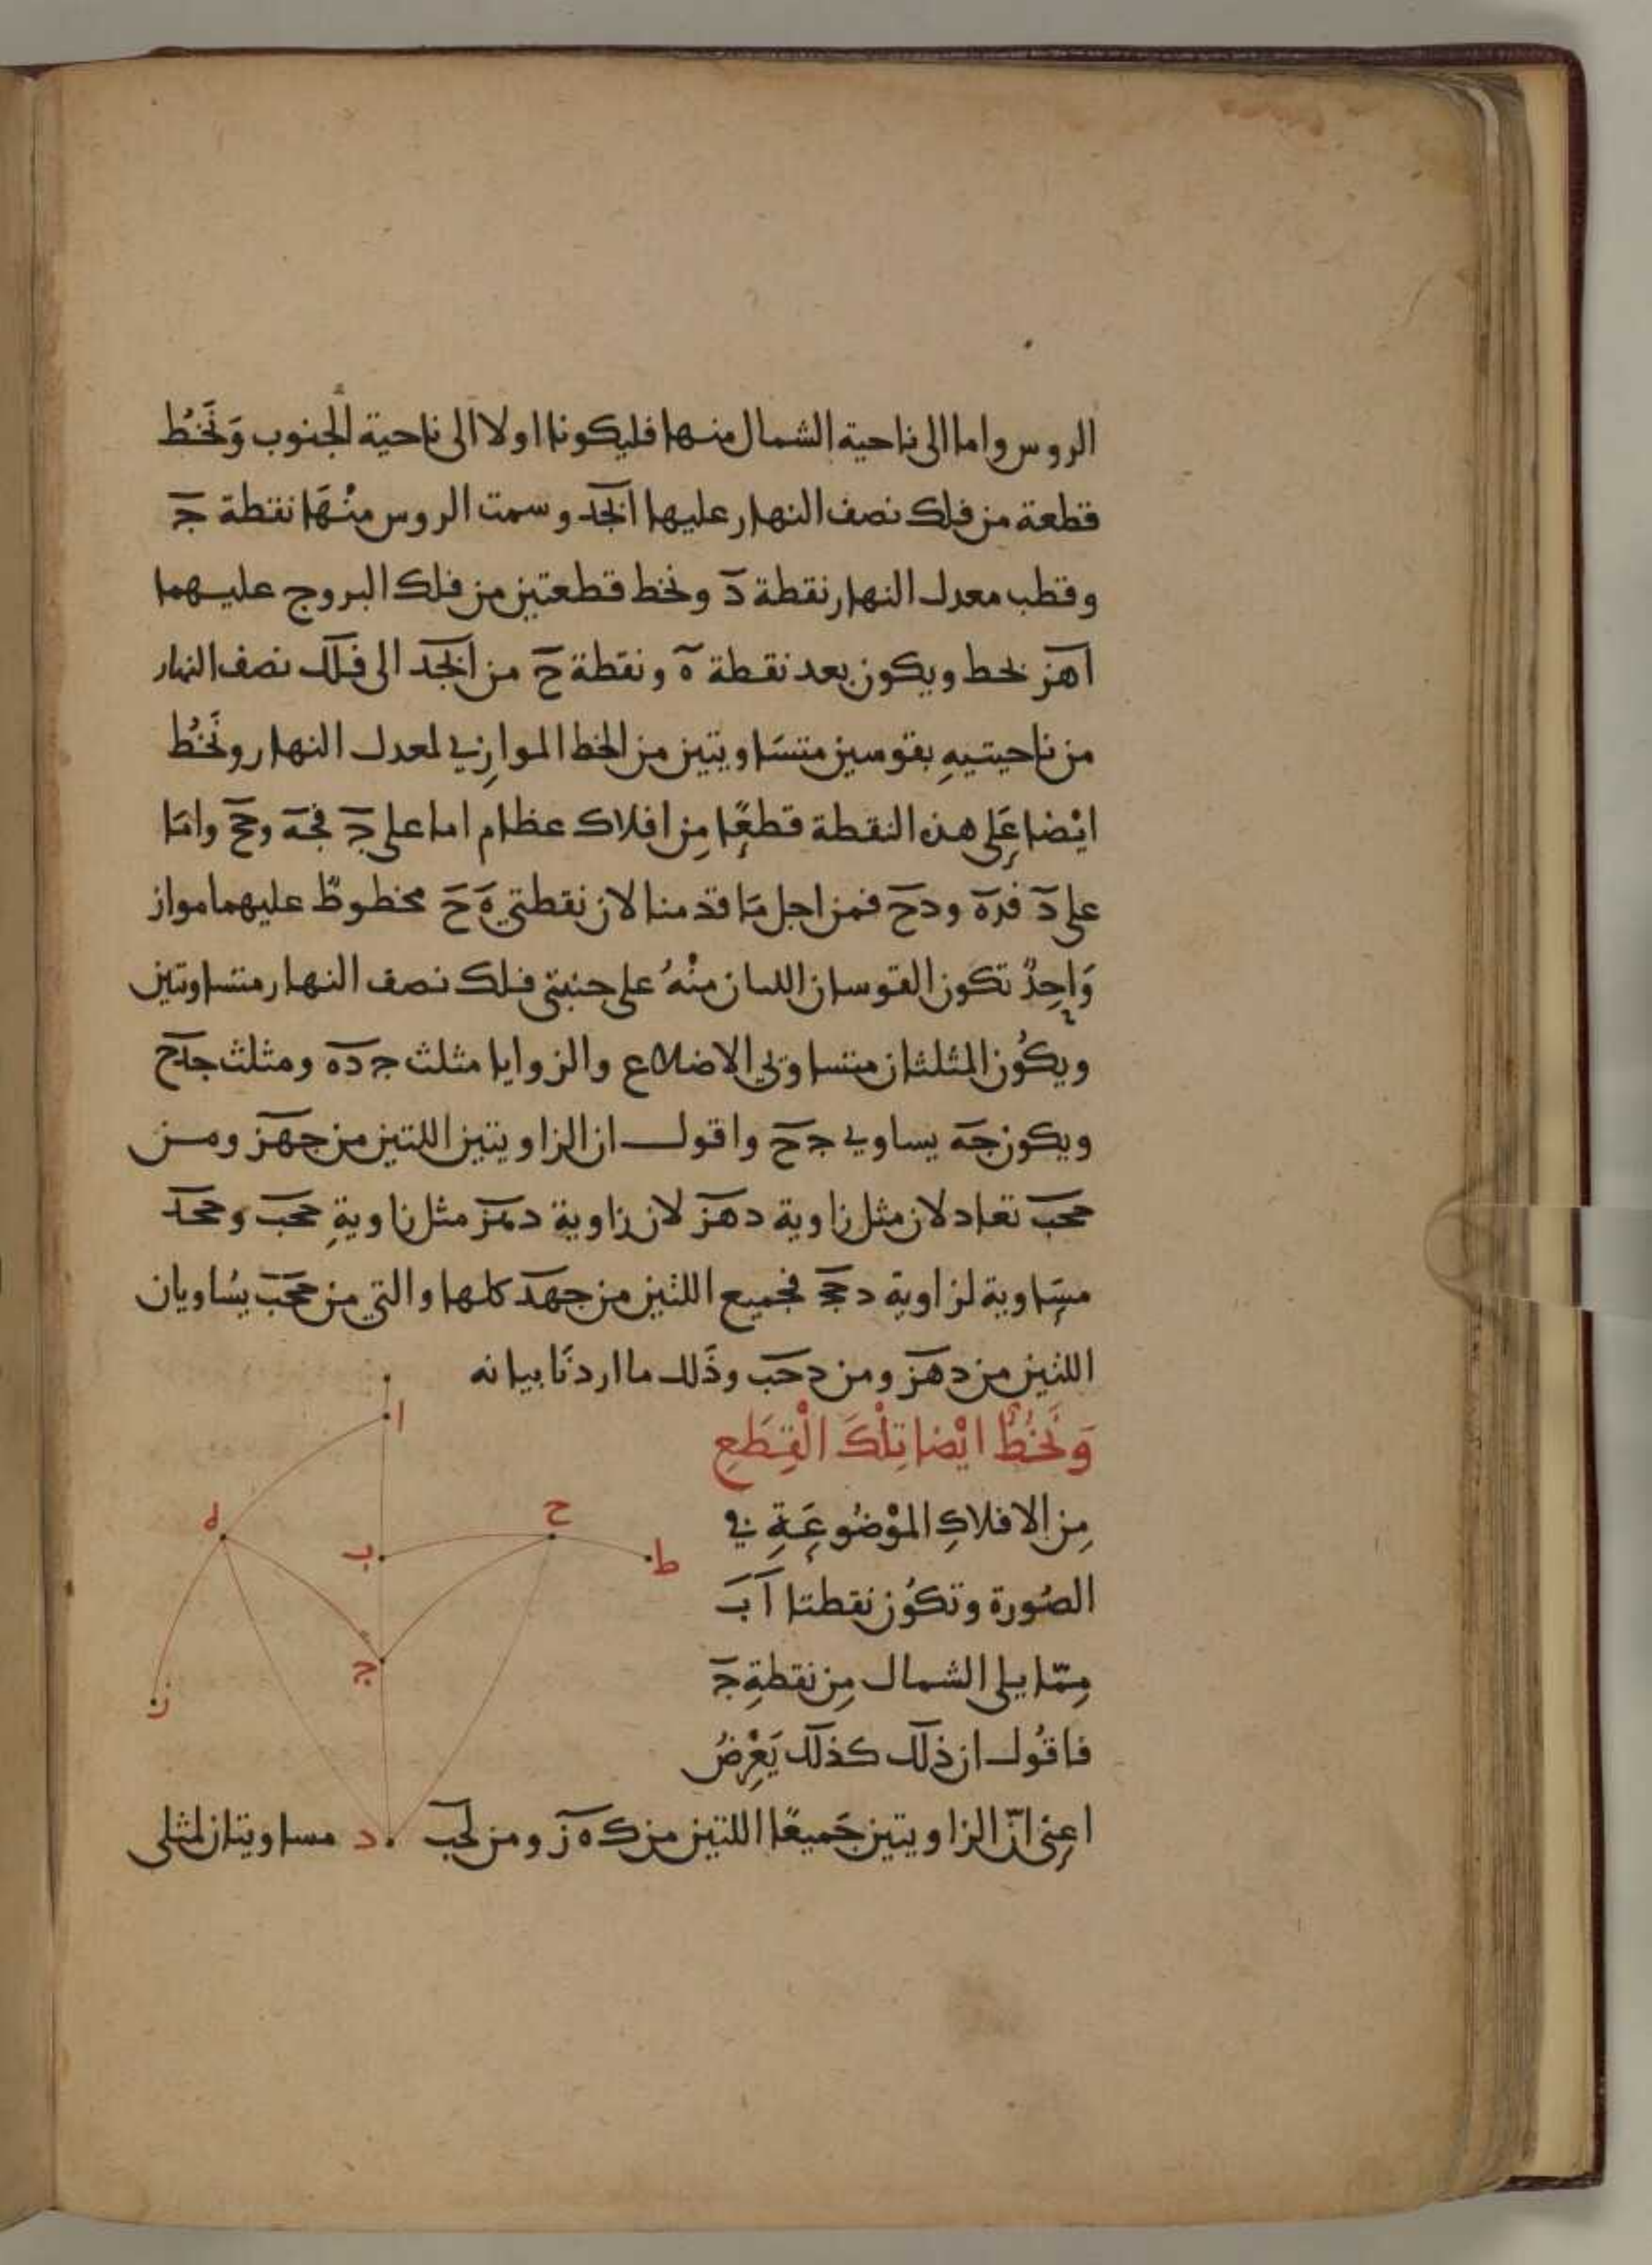 الروس واما الى ناحية الشمال منها فليكونا اولا الى ناحية الجنوب وَنَخُط
قطعة من فلك نصف النهار عليها ابجد وسمت الروس منْهَا نقطة جَ
وقطب معدل النهار نقطة دَ ونخط قطعتين من فلك البروج عليهما
اهز بحط ويكون بعد نقطة ه ونقطة ح من ابجد الى فلك نصف النهار
من ناحيتيهِ بقوسين متسَاويتين من الخط الموازِي لمعدل النهار ونَخُط
ايْضا عَلى هذه النقطة قطعًا مِن افلاك عظام اما على ج فجه وجح وامَا
على د فده ودح فمن اجل مَا قدمنا لان نقطتي ه ح مخطوطٌ عليهما مواز
وَاحِدٌ تكون القوسان اللتان منْهُ على جنبتي فلك نصف النهار متساوتين
ويكُون المثلثان متساوي الاضلاع والزوايا مثلث ج ده ومثلث جدح
ويكون جه يساوي ج ح واقول ان الزاويتين اللتين من جهز ومن
جحب تعادلان مثل زاوية دهز لان زاوية دهز مثل زاويةِ جحب وجحد
مسَاوية لزاوية د ج فجميع اللتين من جهد كلها والتي من جحب يسُاويان
اللتين من دهز ومن دحب وذَلك ما اردنَا بيانه
وَنَخُطُّ ايْضا تِلْكَ الْقِطَعِ
مِن الافلاكِ الموْضُوعَةِ في
الصُورة وتكوُن نقطتا آ بَ
مِمّا يلي الشمال مِن نقطةِ جَ
فاقُول ان ذلك كذلك يَعْرِضُ
اعني انّ الزاويتين جَميعًا اللتين من ك ه ز ومن لحب د مساويتان لمثلى
ا
ه
ح
ب
ط
ج
ز